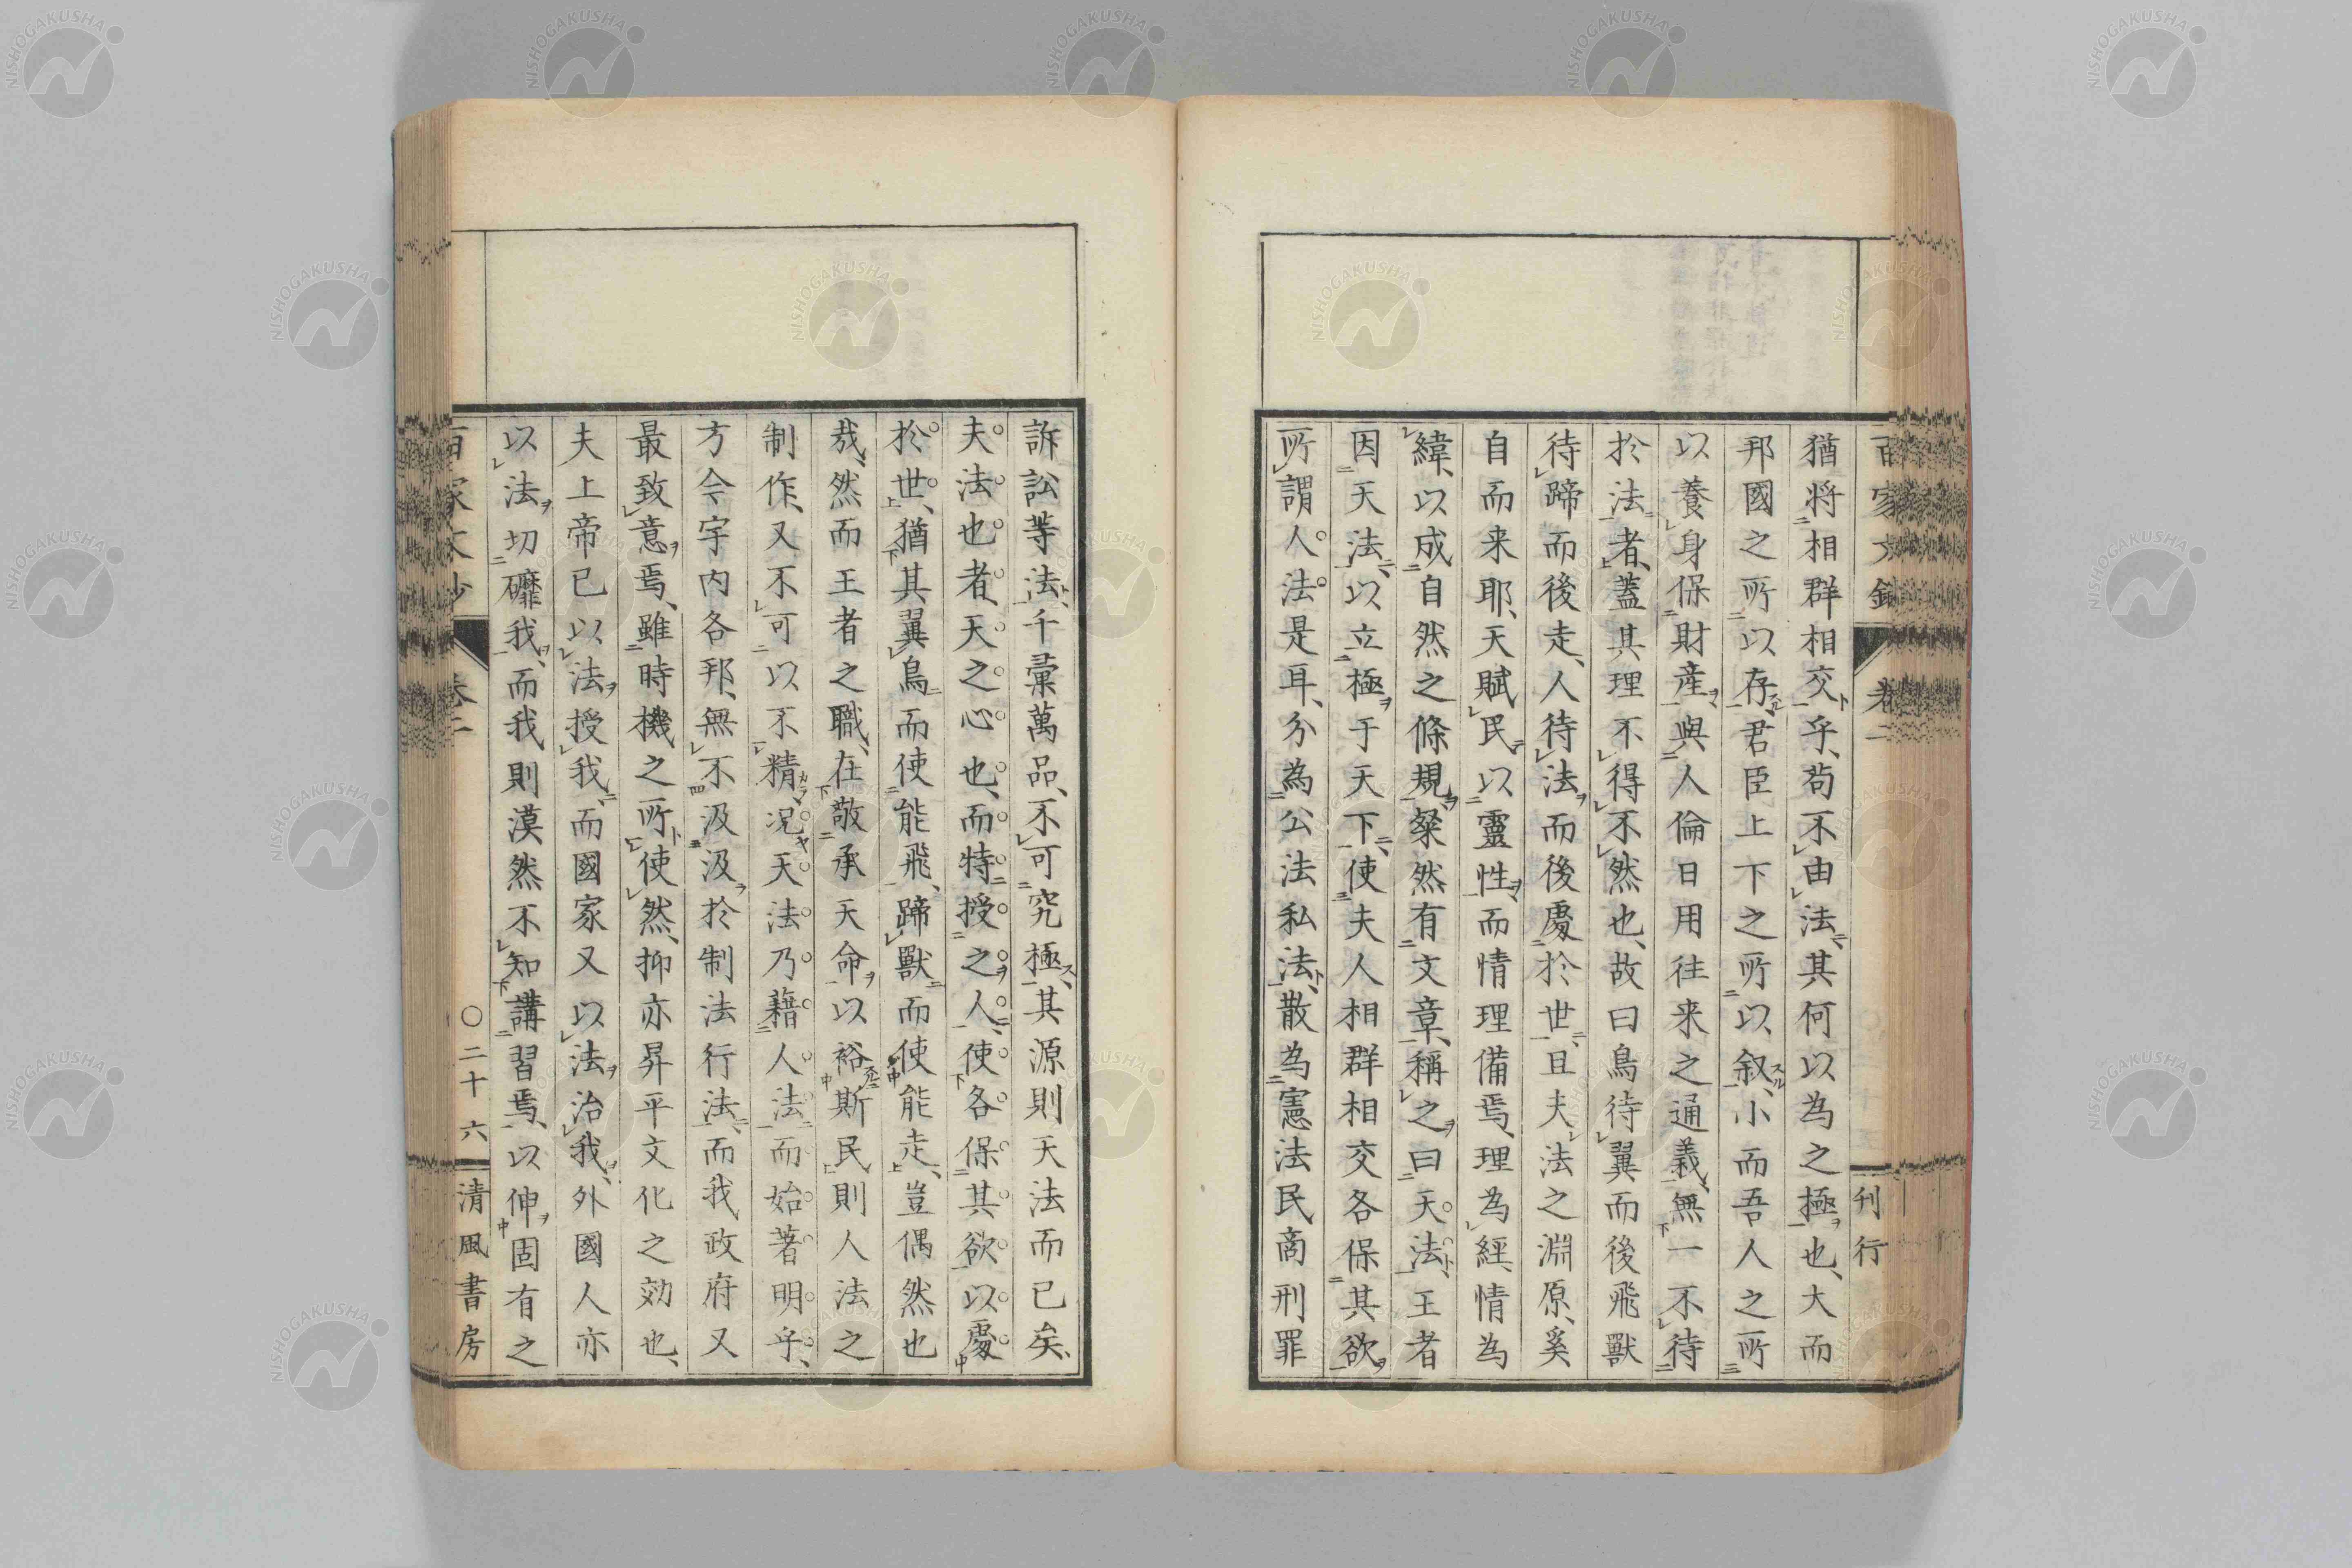 猶將相群相交乎、苟不由法、其何以為之極也、大而
邦國之所以存、君臣上下之所以叙、小而吾人之所
以養身保財産、與人倫日用往来之通義、無一不待
於法者、蓋其理不得不然也、故曰鳥待翼而後飛獸
待蹄而後走、人待法而後處於世、且夫法之淵原、奚
自而来耶、天賦民以靈性、而情理備焉、理為經、情為
緯、以成自然之條規、粲然有文章、稱之曰天法、王者
因天法、以立極于天下、使夫人相群相交各保其欲
所謂人法是耳、分為公法私法、散為憲法民商刑罪
訴訟等法、千彙萬品、不可究極、其源則天法而已矣、
夫法也者、天之心也、而特授之人、使各保其欲以處
於世、猶其翼鳥而使能飛、蹄獸而使能走、豈偶然也
哉、然而王者之職、在敬承天命以裕斯民則人法之
制作、又不可以不精、况天法乃藉人法而始著明乎、
方今宇内各邦、無不汲汲於制法行法、而我政府又
最致意焉、雖時機之所使然、抑亦昇平文化之効也、
夫上帝已以法授我、而國家又以法治我、外國人亦
以法切礲我、而我則漠然不知講習焉、以伸固有之
百家文鈔
卷二
刊行
百家文鈔
卷二
〇二十六
清風書房
NISHOGAKUSHA